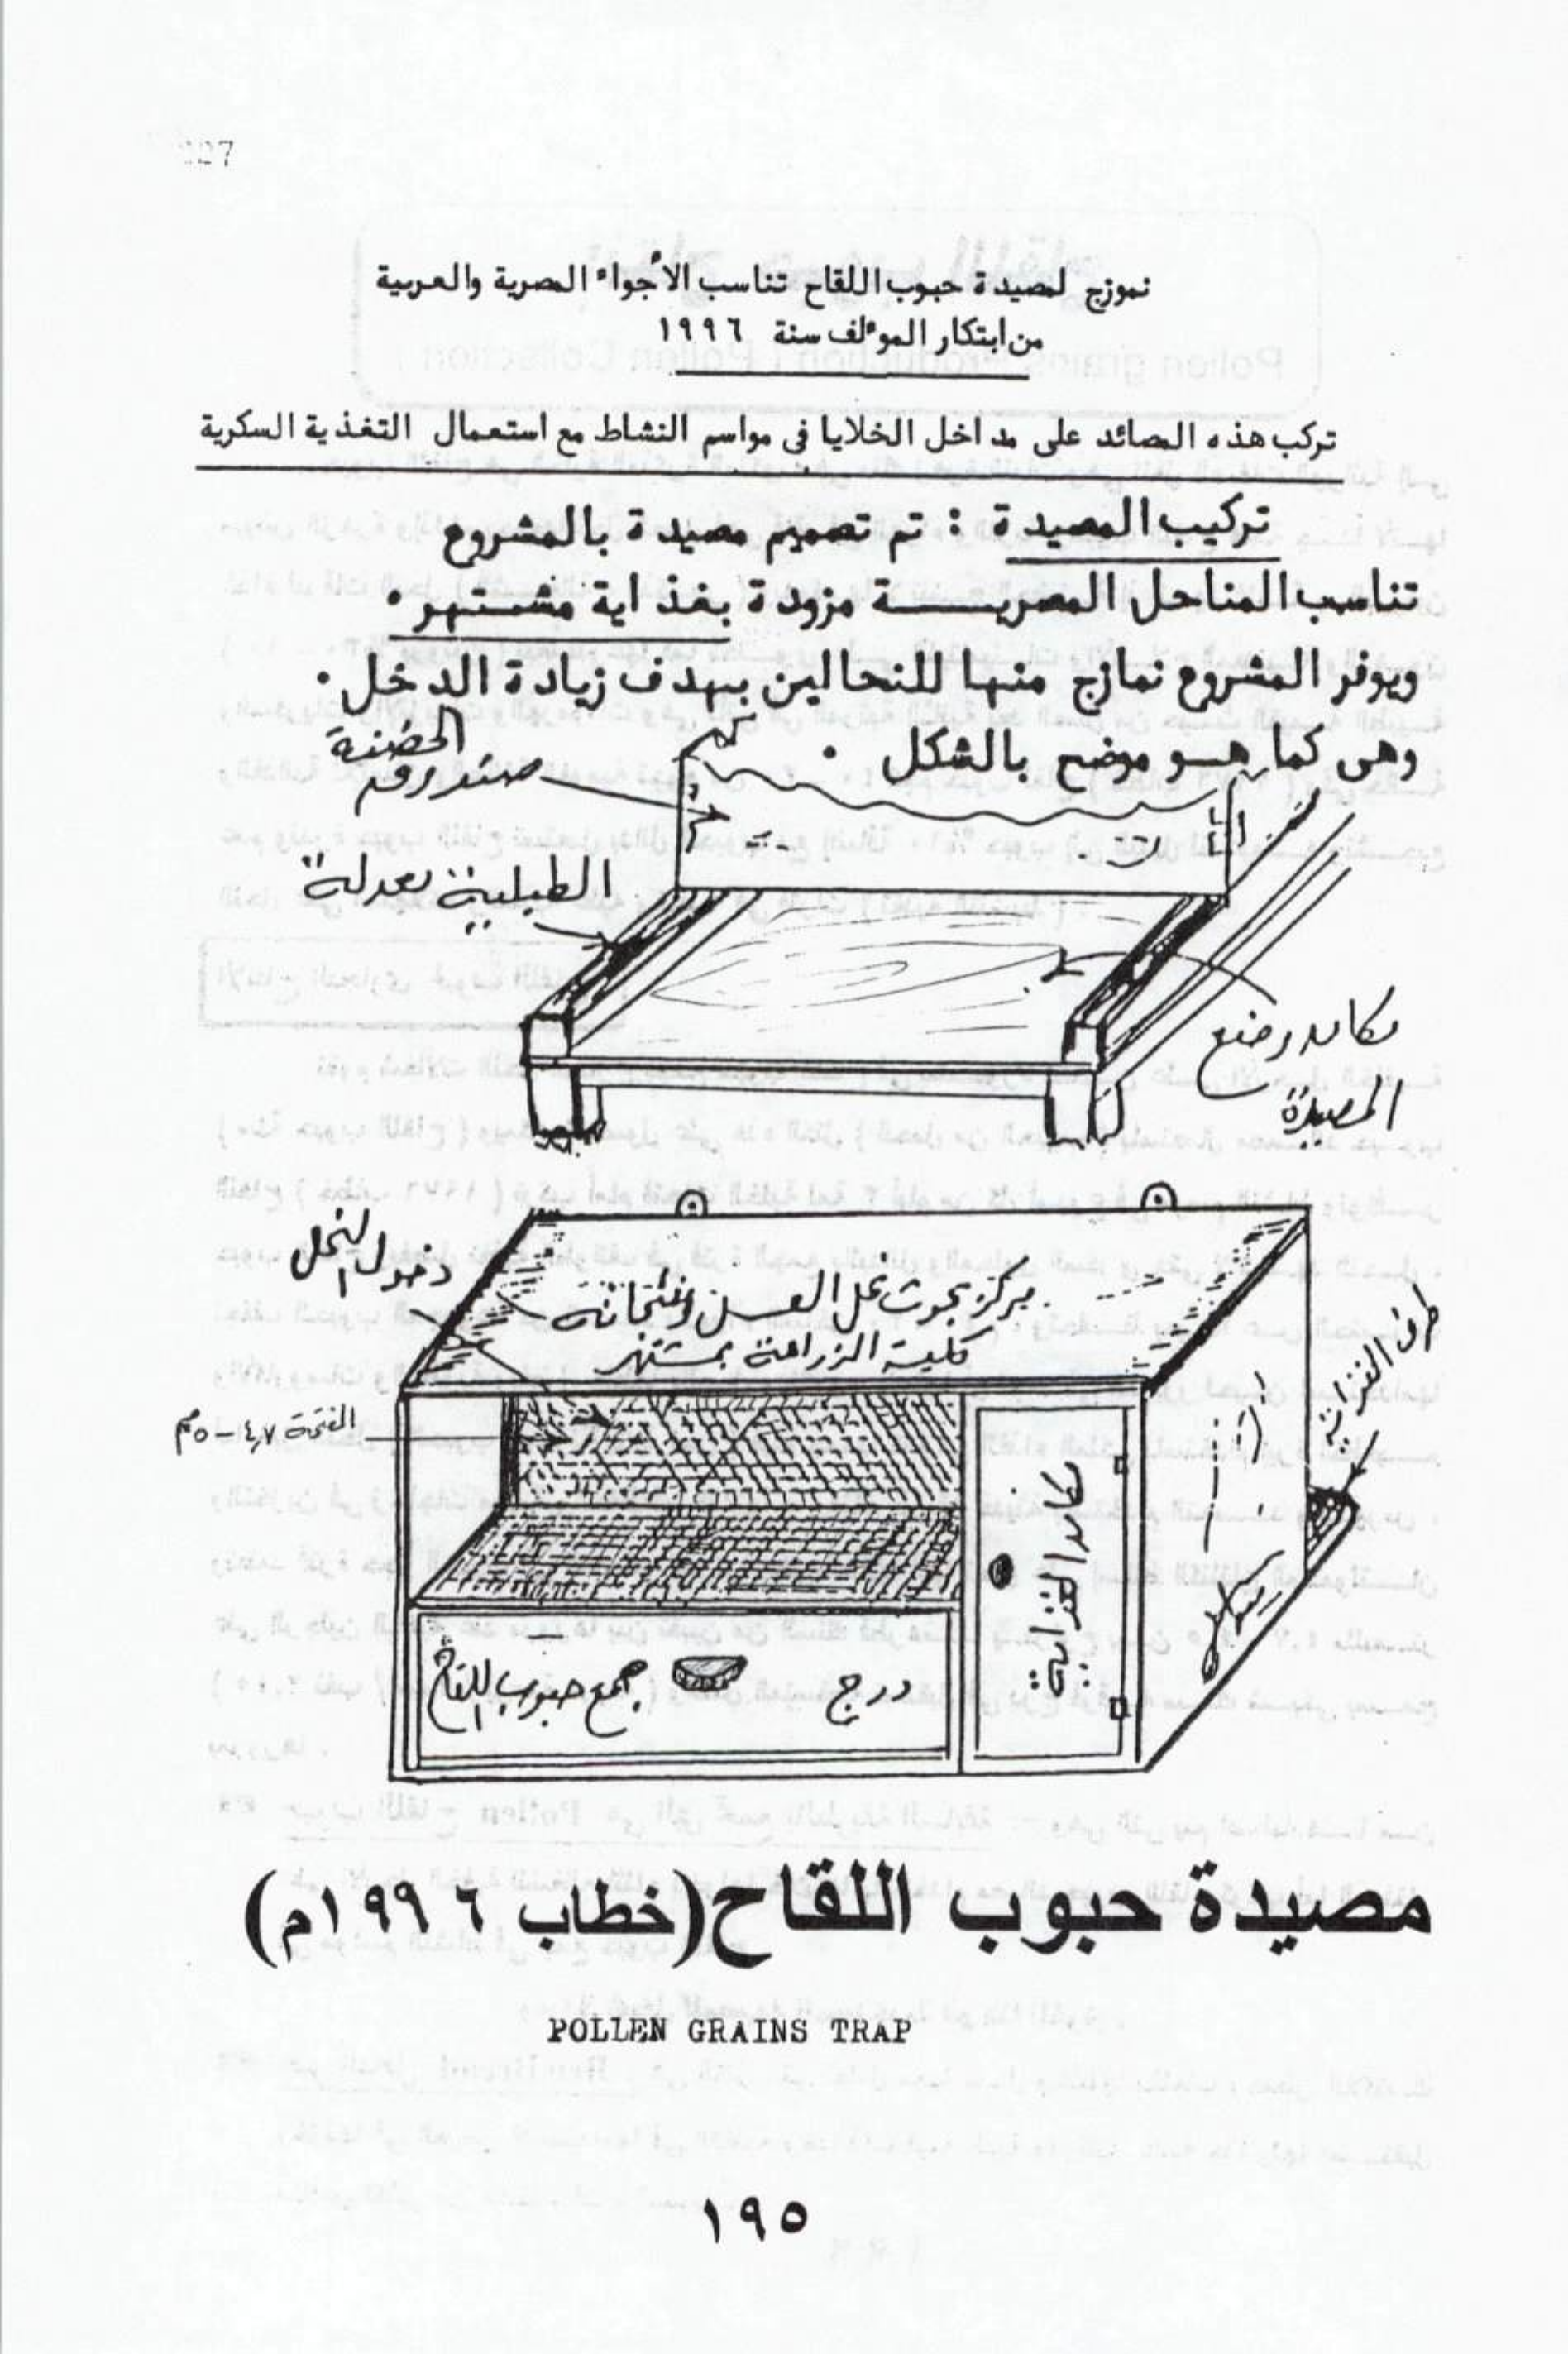 نموزج لمصيدة حبوب اللقاح تناسب الأجواء المصرية والعربية
من ابتكار المؤلف سنة ١٩٩٦
تركب هذه المصائد على مداخل الخلايا فى مواسم النشاط مع استعمال التغذية السكرية
تركيب المصيدة : تم تصميم مصيدة بالمشروع
تناسب المناحل المصريـــــة مزودة بغذاية مشتهر .
ويوفر المشروع نمازج منها للنحالين بهدف زيادة الدخل .
وهى كما هـو موضح بالشكل .
صندوق الحضنة
الطبلية معدلة
مكان وضع
المصيدة
دخول النحل
مركز بحوث نحل العسل ومنتجاته
كلية الزراعة بمشتهر
طرف الغذاية
الفتحة ٤,٧ – ٥ مم
مكان الغذاية
درج
جمع حبوب اللقاح
مصيدة حبوب اللقاح(خطاب ١٩٩٦م)
POLLEN GRAINS TRAP
١٩٥